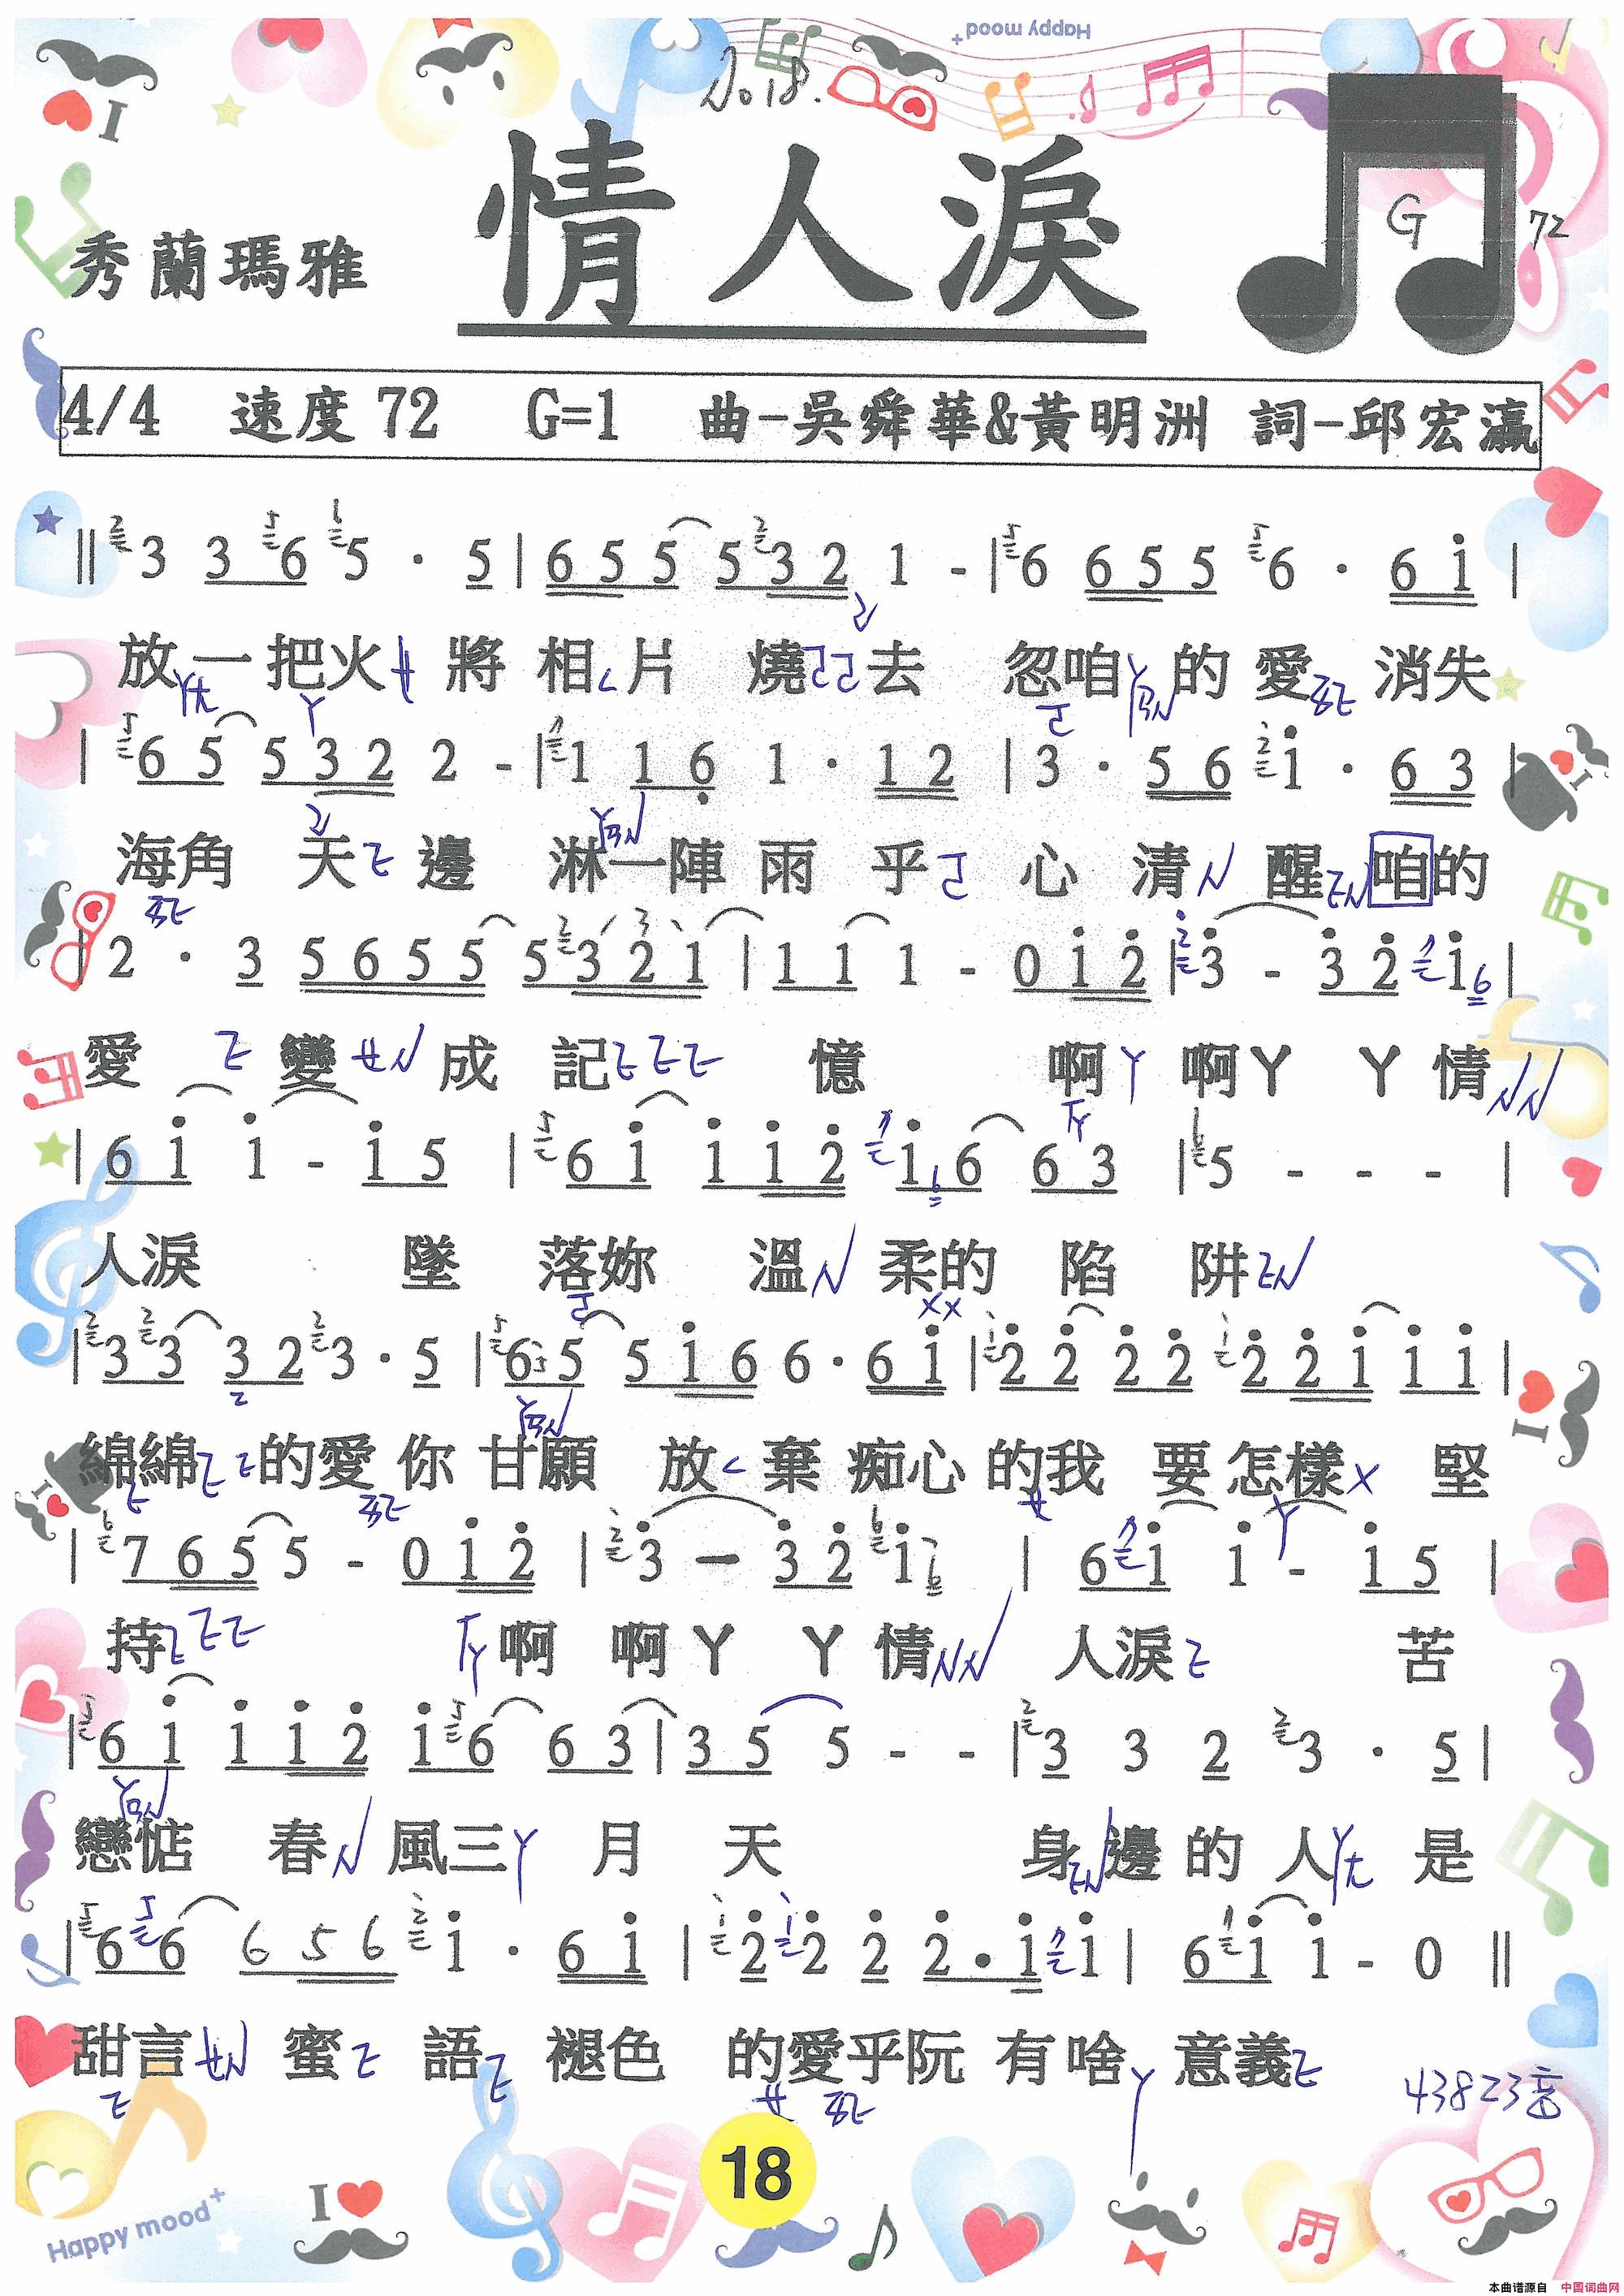 Happy mood+
No.18.
I
情人淚
秀蘭瑪雅
G
72
4/4 速度 72 G=1 曲-吳舜華&黃明洲 詞-邱宏瀛
‖ 3 3 6 5 · 5 | 6 5 5 5 3 2 1 - | 6 6 5 5 6 · 6 i |
放一把火 將 相 片 燒 去 忽咱 的 愛 消失
| 6 5 5 3 2 2 - | 1 1 6 1 · 1 2 | 3 · 5 6 i · 6 3 |
海角 天 邊 淋一陣 雨 乎 心 清 醒 咱的
| 2 · 3 5 6 5 5 5 3 2 1 | 1 1 1 - 0 i 2 | 3 - 3 2 i 6 |
愛 變 成 記 憶 啊 啊ㄚ ㄚ 情
| 6 i i - i 5 | 6 i i i 2 i 6 6 3 | 5 - - - |
人淚 墜 落妳 溫 柔的 陷 阱
| 3 3 3 2 3 · 5 | 6 5 5 i 6 6 · 6 i | 2 2 2 2 2 2 i i i |
綿綿 的愛 你 甘願 放 棄 痴心 的我 要 怎樣 堅
| 7 6 5 5 - 0 i 2 | 3 - 3 2 i 6 | 6 i i - i 5 |
持 啊 啊 ㄚ ㄚ 情 人淚 苦
| 6 i i i 2 i 6 6 3 | 3 5 5 - - | 3 3 2 3 · 5 |
戀惦 春 風三 月 天 身 邊 的 人 是
| 6 6 6 5 6 i · 6 i | 2 2 2 2 · i i | 6 i i - 0 ‖
甜言 蜜 語 褪色 的愛乎阮 有啥 意義
43823音
18
Happy mood+
I
本曲谱源自 中国词曲网